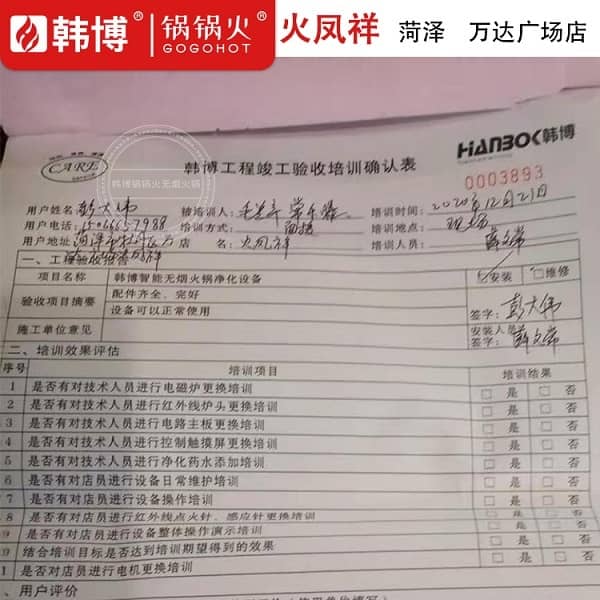 韩博 锅锅火 GOGOHOT 火凤祥 菏泽 万达广场店
CARE
HANBOK韩博
韩博工程竣工验收培训确认表
0003893
韩博锅锅火无烟火锅
用户姓名 彭大伟 被培训人: 培训时间: 2020年12月21日
用户电话: 培训方式: 面授 培训地点: 现场
用户地址: 店 名: 火凤祥 培训人员:
一、工程验收报告
项目名称 韩博智能无烟火锅净化设备 安装 维修
验收项目摘要 配件齐全、完好
设备可以正常使用
签字: 彭大伟
施工单位意见 安装人员
签字:
二、培训效果评估
序号 培训项目 培训结果
1 是否有对技术人员进行电磁炉更换培训 是 否
2 是否有对技术人员进行红外线炉头更换培训 是 否
3 是否有对技术人员进行电路主板更换培训 是 否
4 是否有对技术人员进行控制触摸屏更换培训 是 否
5 是否有对技术人员进行净化药水添加培训 是 否
6 是否有对店员进行设备日常维护培训 是 否
7 是否有对店员进行设备操作培训 是 否
8 是否有对店员进行红外线点火针、感应针更换培训 是 否
9 是否有对店员进行设备整体操作演示培训 是 否
结合培训目标是否达到培训期望得到的效果 是 否
1 是否对店员进行电机更换培训 是 否
、用户评价